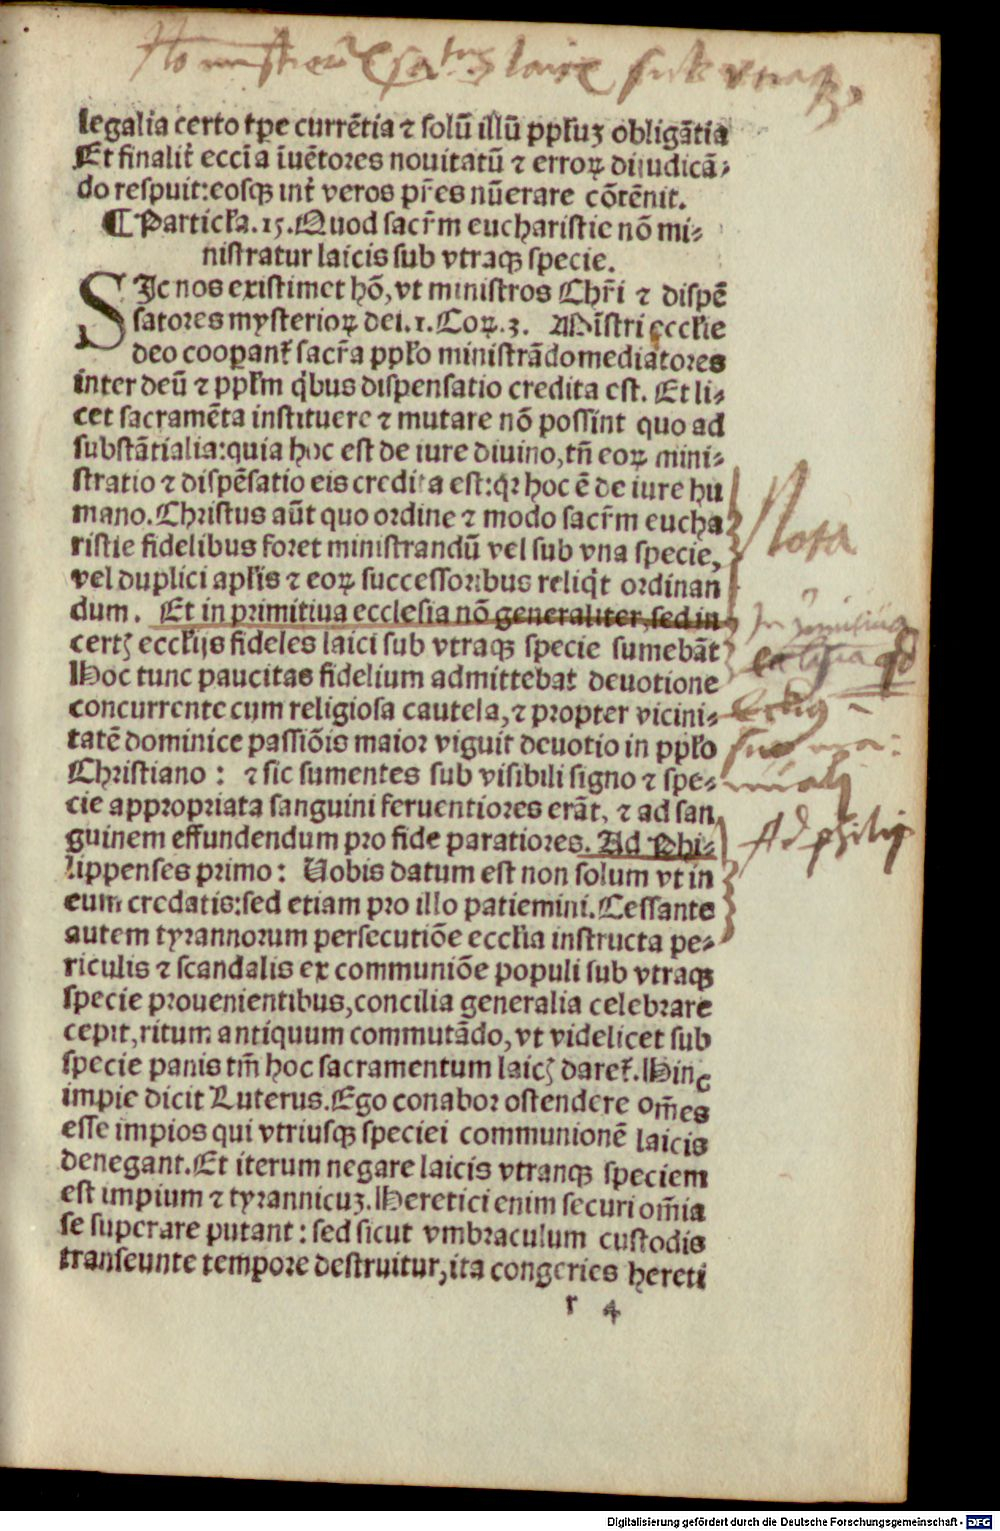 legalia certo tꝑe currētia ⁊ solū illū ppłuꝫ obligātia
Et finalit̄ eccīa īuētores nouitatū ⁊ erroꝝ diiudicā⸗
do respuit:eosqꝫ int̄ veros p̄res nūerare cōtēnit.
¶ Particła.15.Quod sacr̄m eucharistie nō mi⸗
nistratur laicis sub vtraqꝫ specie.
SIc nos existimet hō,vt ministros Chr̄i ⁊ dispē
satores mysterioꝝ dei.1.Coꝝ.3. Mīstri eccłie
deo cooꝑant̄ sacr̄a ppło ministrādo mediatores
inter deū ⁊ ppłm q̄bus dispensatio credita est. Et li⸗
cet sacramēta instituere ⁊ mutare nō possint quo ad
substātialia:quia hoc est de iure diuino,tn̄ eoꝝ mini⸗
stratio ⁊ dispēsatio eis credita est:qꝛ hoc ē de iure hu
mano.Christus aūt quo ordine ⁊ modo sacr̄m eucha
ristie fidelibus foret ministrandū vel sub vna specie,
vel duplici apłis ⁊ eoꝝ successoribus reliq̄t ordinan
dum. Et in primitiua ecclesia nō generaliter,sed in
certꝭ eccłijs fideles laici sub vtraqꝫ specie sumebāt
Hoc tunc paucitas fidelium admittebat deuotione
concurrente cum religiosa cautela,⁊ propter vicini⸗
tatē dominice passiōis maior viguit deuotio in ppło
Christiano : ⁊ sic sumentes sub visibili signo ⁊ spe⸗
cie appropriata sanguini feruentiores erāt, ⁊ ad san
guinem effundendum pro fide paratiores. Ad Phi⸗
lippenses primo : Uobis datum est non solum vt in
eum credatis:sed etiam pro illo patiemini.Cessante
autem tyrannorum persecutiōe eccłia instructa pe⸗
riculis ⁊ scandalis ex communiōe populi sub vtraqꝫ
specie prouenientibus,concilia generalia celebrare
cepit,ritum antiquum commutādo,vt videlicet sub
specie panis tm̄ hoc sacramentum laicꝭ daret̄.Hinc
impie dicit Luterus.Ego conabor ostendere om̄es
esse impios qui vtriusqꝫ speciei communionē laicis
denegant.Et iterum negare laicis vtranqꝫ speciem
est impium ⁊ tyrannicuꝫ.Heretici enim securi om̄ia
se superare putant : sed sicut vmbraculum custodis
transeunte tempore destruitur,ita congeries hereti
r 4
Nota
In primitiua
ecclesia qd
Ad philip
Digitalisierung gefördert durch die Deutsche Forschungsgemeinschaft - DFG